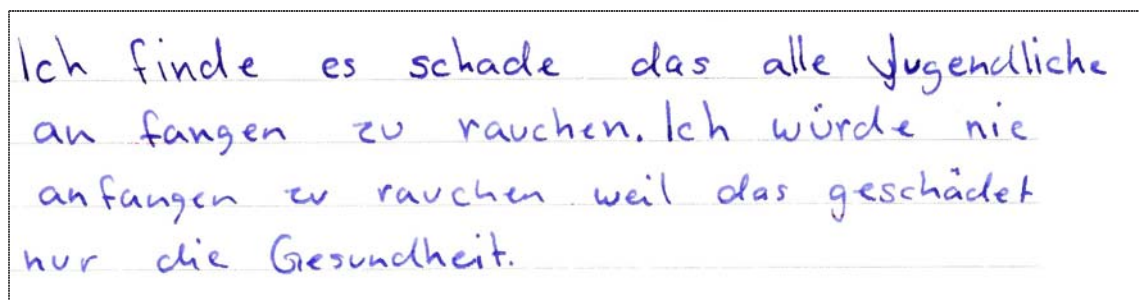 Ich finde es schade das alle Jugendliche
an fangen zu rauchen. Ich würde nie
anfangen zu rauchen weil das geschädet
nur die Gesundheit.